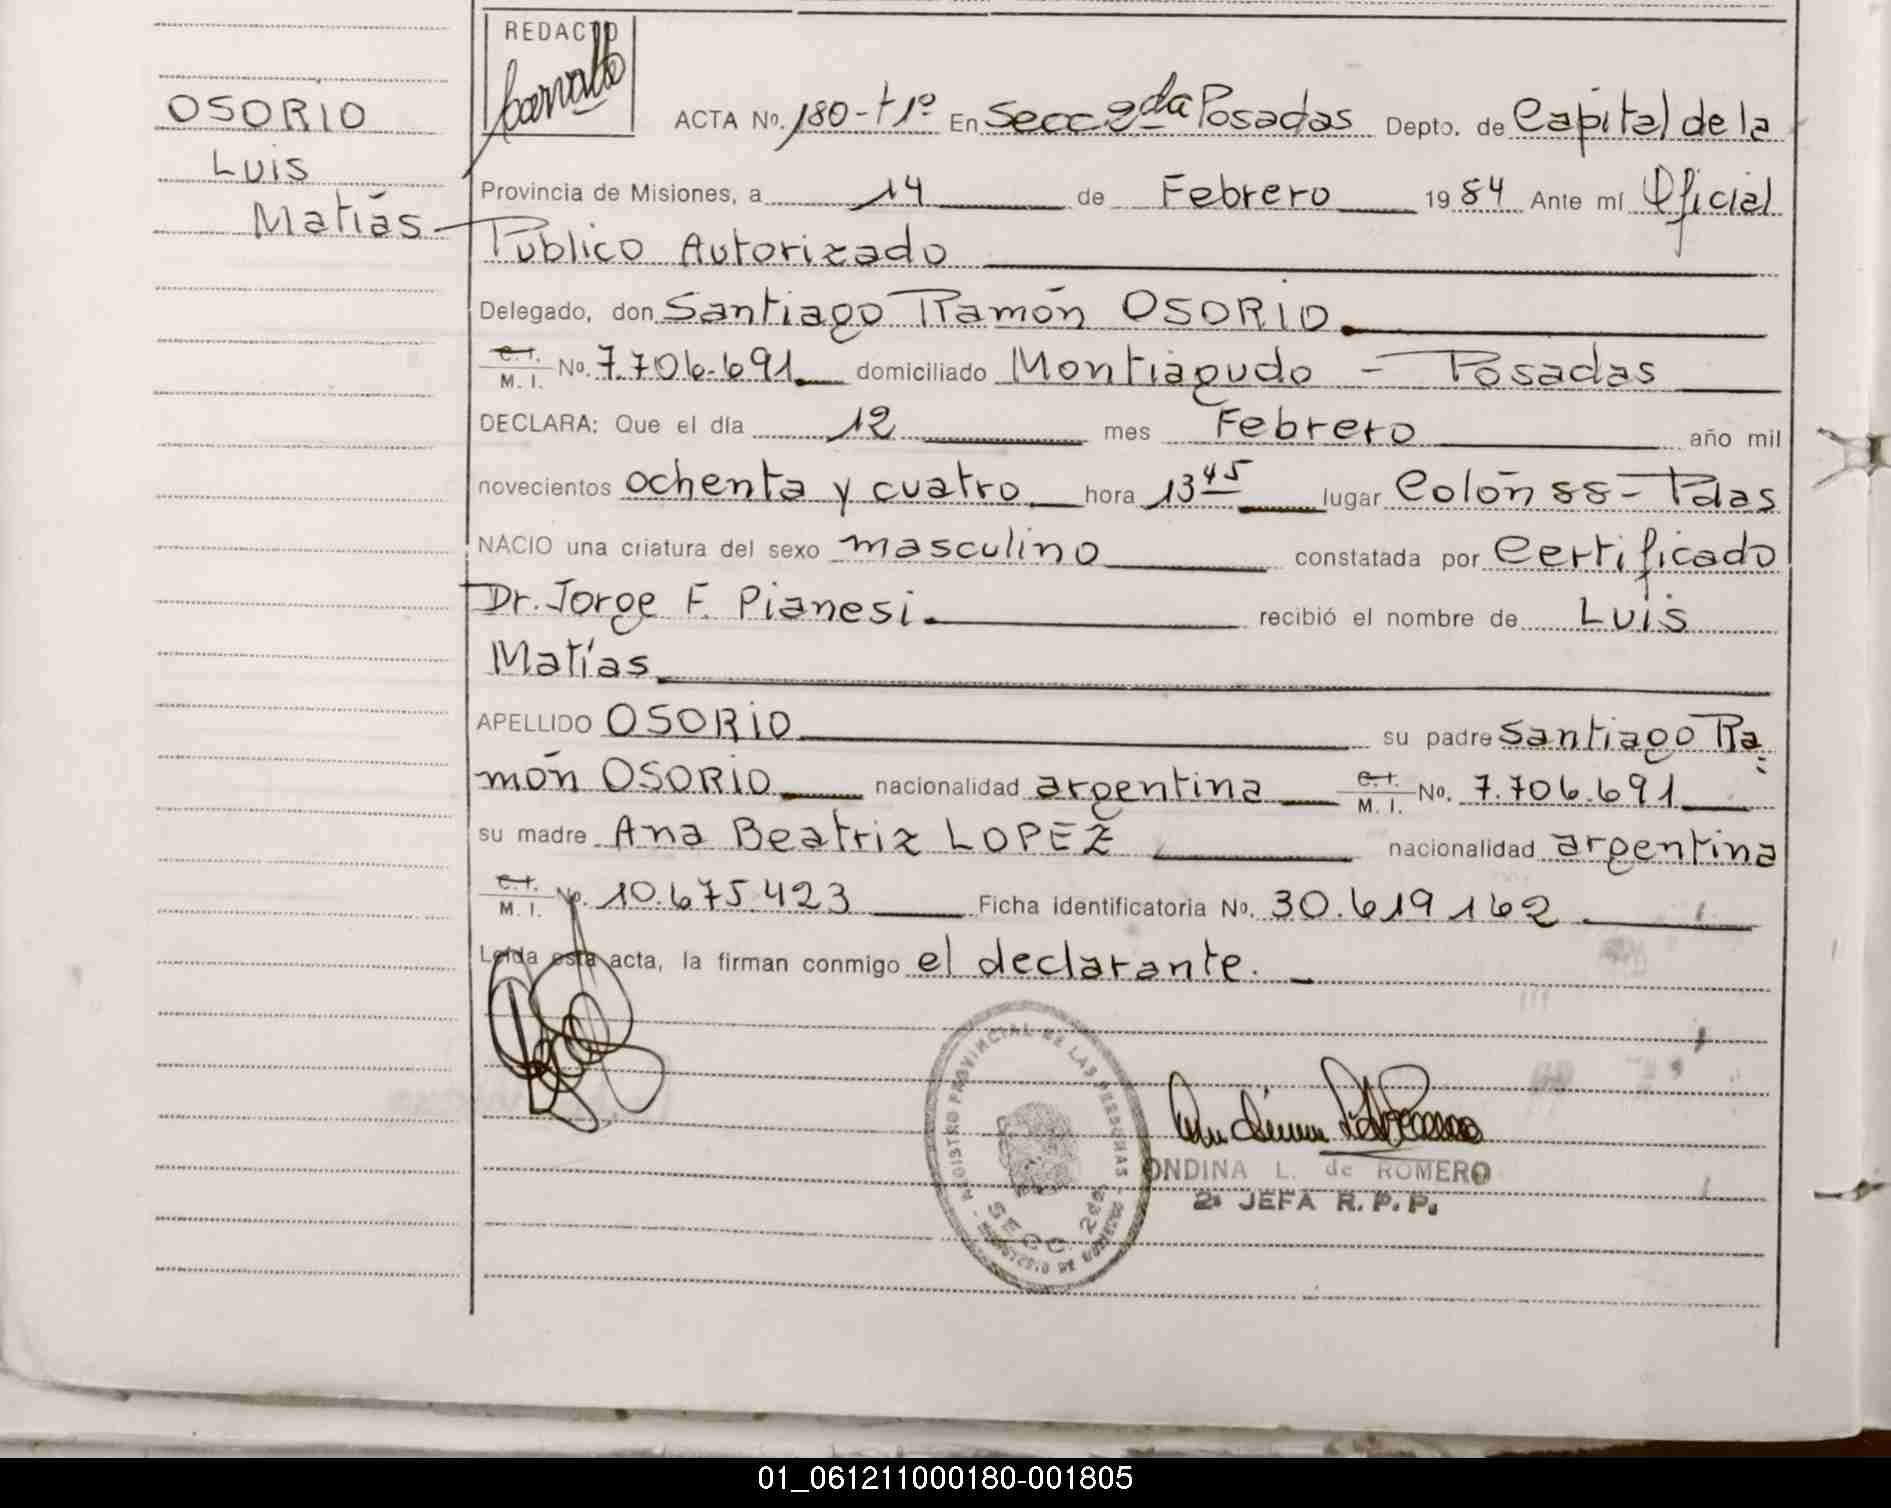 OSORIO
Luis
Matías
REDACTO
ACTA No. 180-t1º En Secc 2da Posadas Depto. de Capital de la
Provincia de Misiones, a 14 de Febrero 1984 Ante mí Oficial
Publico Autorizado
Delegado, don Santiago Ramón OSORIO.
C.I. M. I. No. 7.706.691. domiciliado Montiagudo - Posadas
DECLARA: Que el día 12 mes Febrero año mil
novecientos ochenta y cuatro hora 13 45 lugar Colón 88- Pdas
NACIO una criatura del sexo masculino constatada por Certificado
Dr. Jorge F. Pianesi. recibió el nombre de Luis
Matías
APELLIDO OSORIO su padre Santiago Ra=
món OSORIO nacionalidad argentina C.I. M. I. No. 7.706.691
su madre Ana Beatriz LOPEZ nacionalidad argentina
C.I. M. I. No. 10.675.423 Ficha identificatoria No. 30.619.162
Leída esta acta, la firman conmigo el declarante.
REGISTRO PROVINCIAL DE LAS PERSONAS - MINISTERIO DE GOBIERNO -
SECC. 2da
ONDINA L. de ROMERO
2a JEFA R. P. P.
01_061211000180-001805